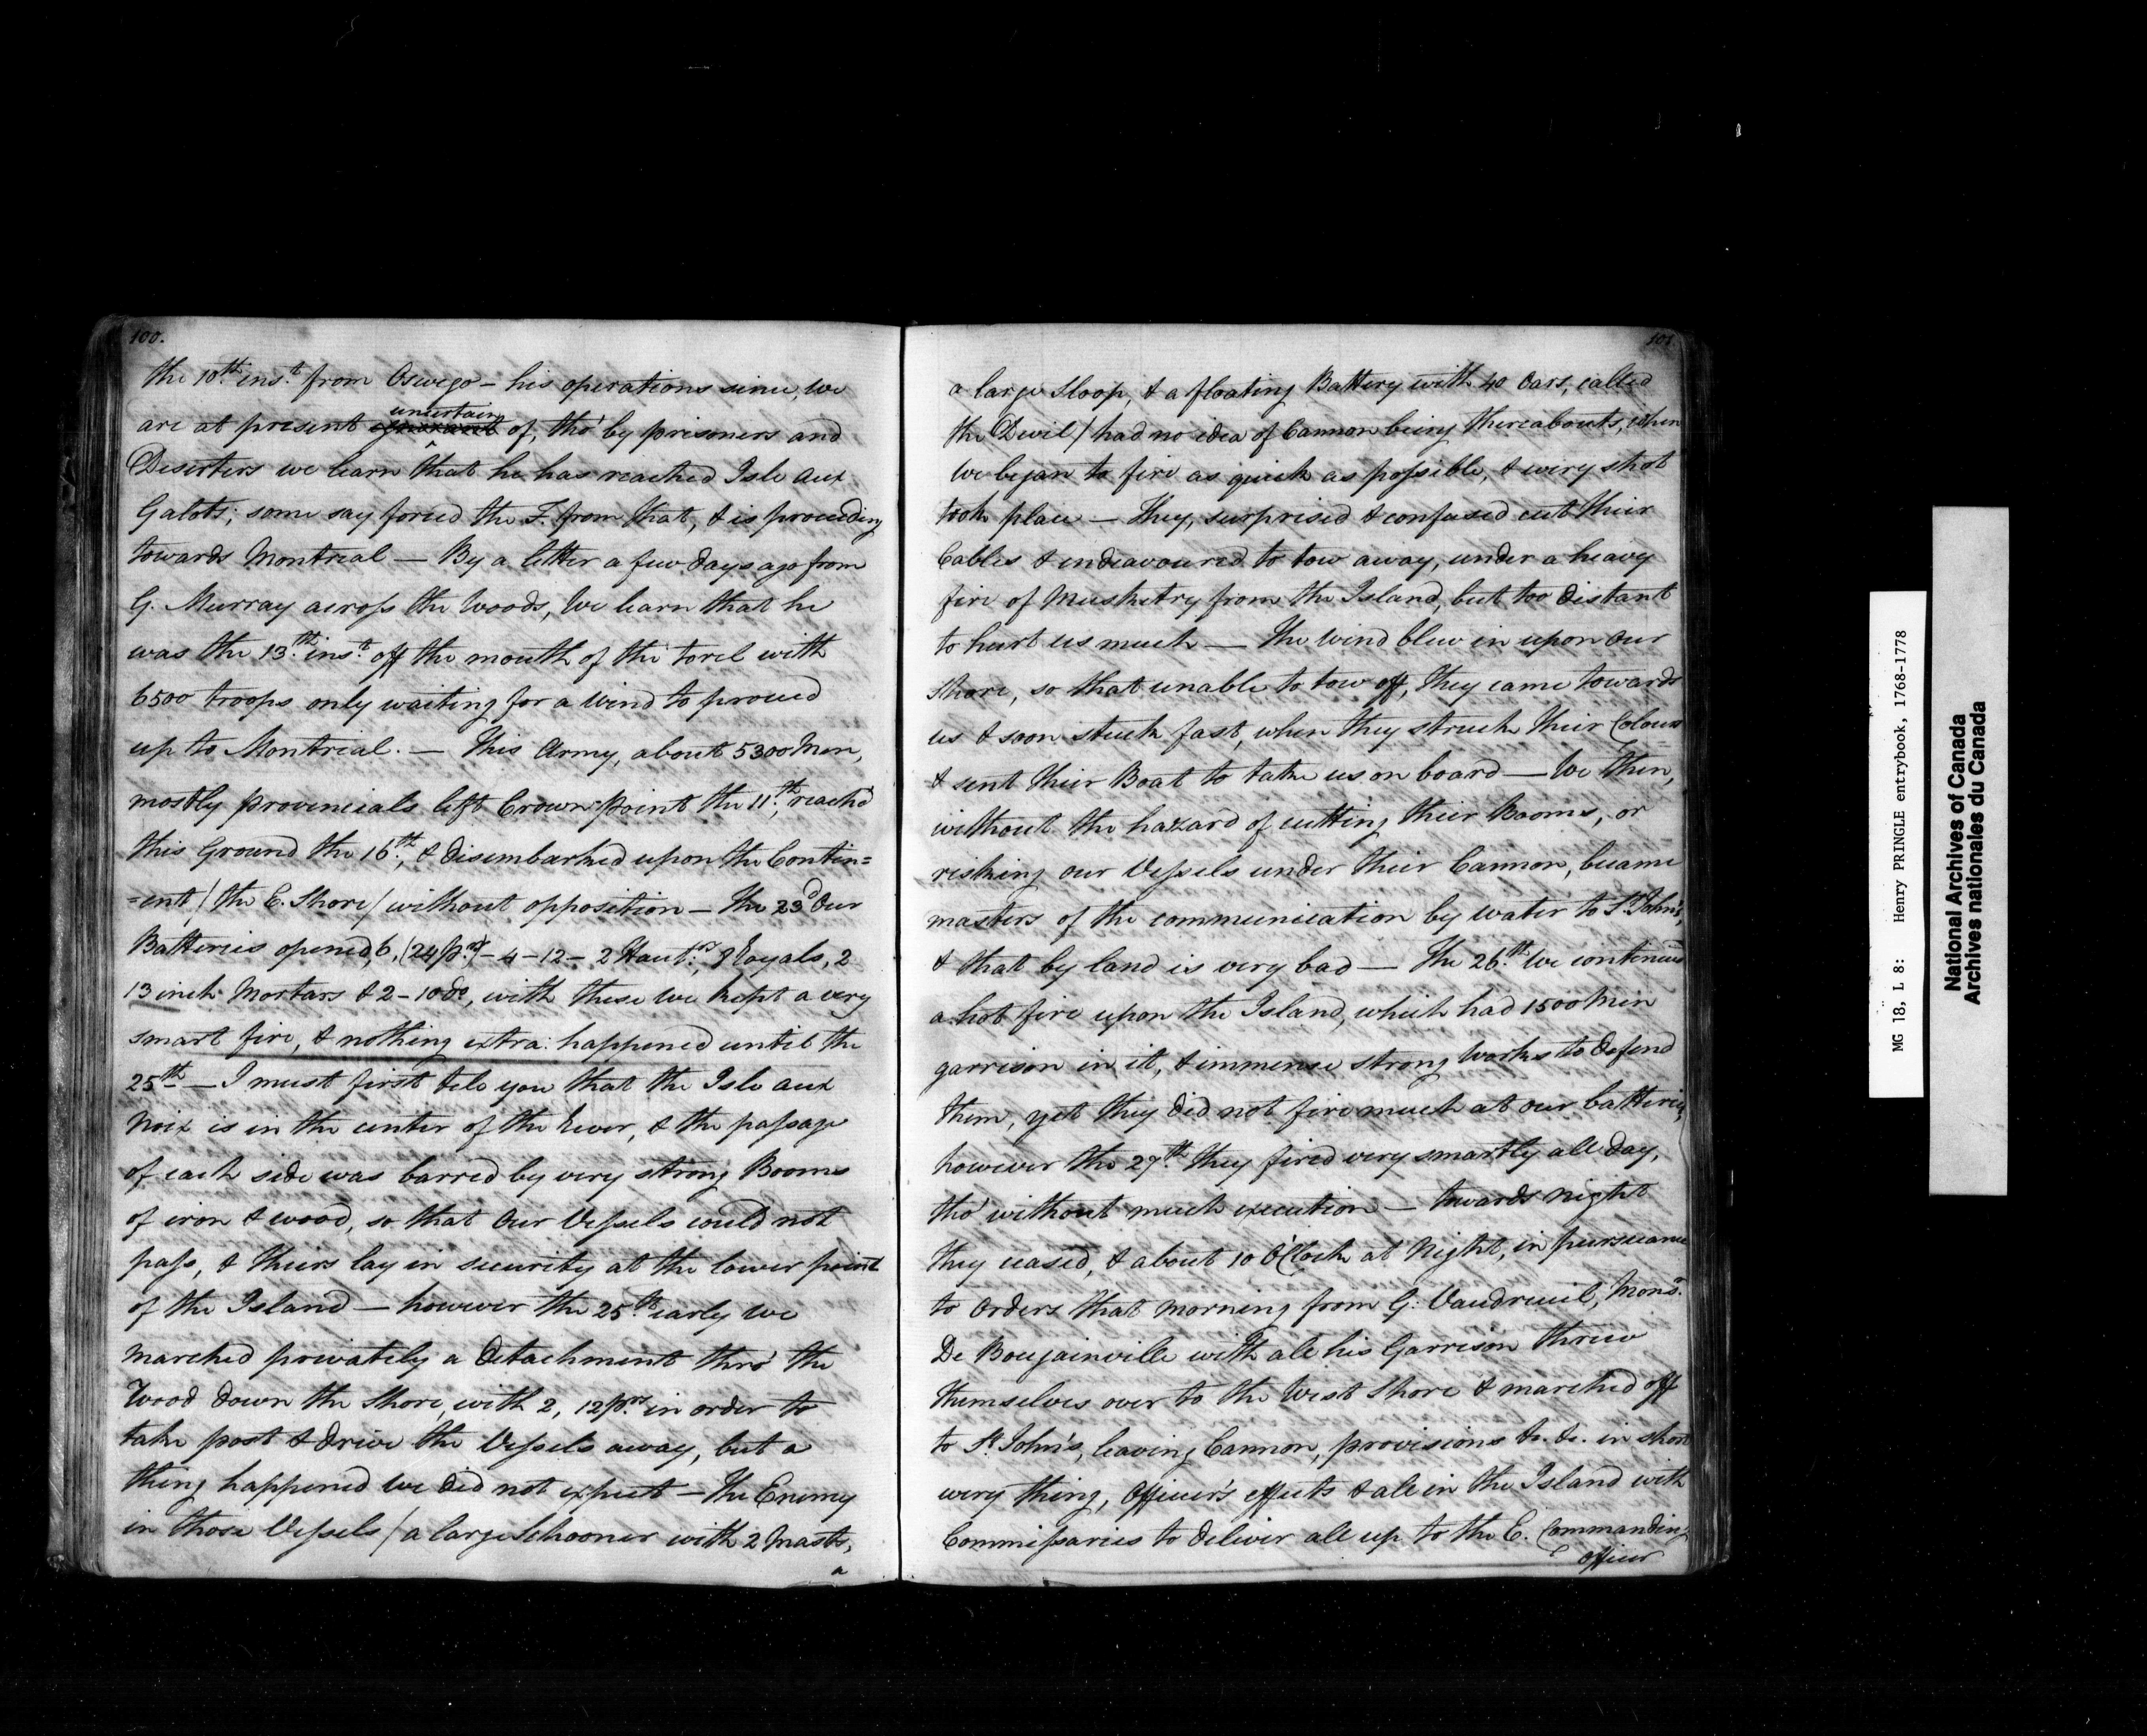 100.
the 10th. inst. from Oswego – his operations since, we
are at present ignorant uncertain of, tho' by prisoners and
Deserters we learn that he has reached Isle aux
Galots; some say forced the F. from that, & is proceeding
towards Montreal — By a letter a few days ago from
G. Murray across the Woods, we learn that he
was the 13th. inst. off the mouth of the Sorel with
6500 troops only waiting for a Wind to proceed
up to Montreal. — This Army, about 5300 Men,
mostly provincials left Crown point the 11th., reach'd
this Ground the 16th., & disembarked upon the Contin=
=ent / the E. Shore / without opposition — the 23d. Our
Batteries opened, 6, (24 prs.) – 4 – 12 – 2 Hautrs., 8 Royals, 2
13 inch Mortars & 2 – 10 do., with these we kept a very
smart fire, & nothing extra: happened until the
25th. — I must first tele you that the Isle aux
Noix is in the center of the River, & the passage
of each side was barred by very strong Booms
of iron & wood, so that Our Vessels could not
pass, & theirs lay in security at the lower point
of the Island — however the 25th. early we
marched privately a Detachment thro' the
Wood down the Shore, with 2, 12 prs. in order to
take post & drive the Vessels away, but a
thing happened we did not expect — The Enemy
in those Vessels / a large Schooner with 2 Masts,
a
101
a large Sloop, & a floating Battery with 40 Oars, called
the Devil / had no idea of Cannon being thereabouts, when
We began to fire as quick as possible, & every shot
took place — They, surprised & confused cut their
Cables & endeavoured to tow away, under a heavy
fire of Musketry from the Island, but too distant
to hurt us much — The Wind blew in upon our
Shore, so that unable to tow off, they came towards
us & soon stuck fast, when they struck their Colours
& sent their Boat to take us on board — We then,
without the hazard of cutting their Booms, or
risking our Vessels under their Cannon, became
masters of the communication by water to St. John's,
& that by land is very bad — The 26th. We continued
a hot fire upon the Island, which had 1500 Men
garrison in it, & immense strong Works to defend
them, yet they did not fire much at our batteries,
however the 27th. they fired very smartly all day,
tho' without much execution — towards night
they ceased, & about 10 O'Clock at Night, in pursuance
to Orders that morning from G: Vaudreuil, Monsr.
De Bougainville with all his Garrison threw
themselves over to the West Shore & marched off
to St. John's, leaving Cannon, provisions &c. &c. in short
every thing, Officer's effects & all in the Island with
Commissaries to deliver all up to the E. Commanding
officer
MG 18, L 8: Henry PRINGLE entrybook, 1768-1778
National Archives of Canada
Archives nationales du Canada